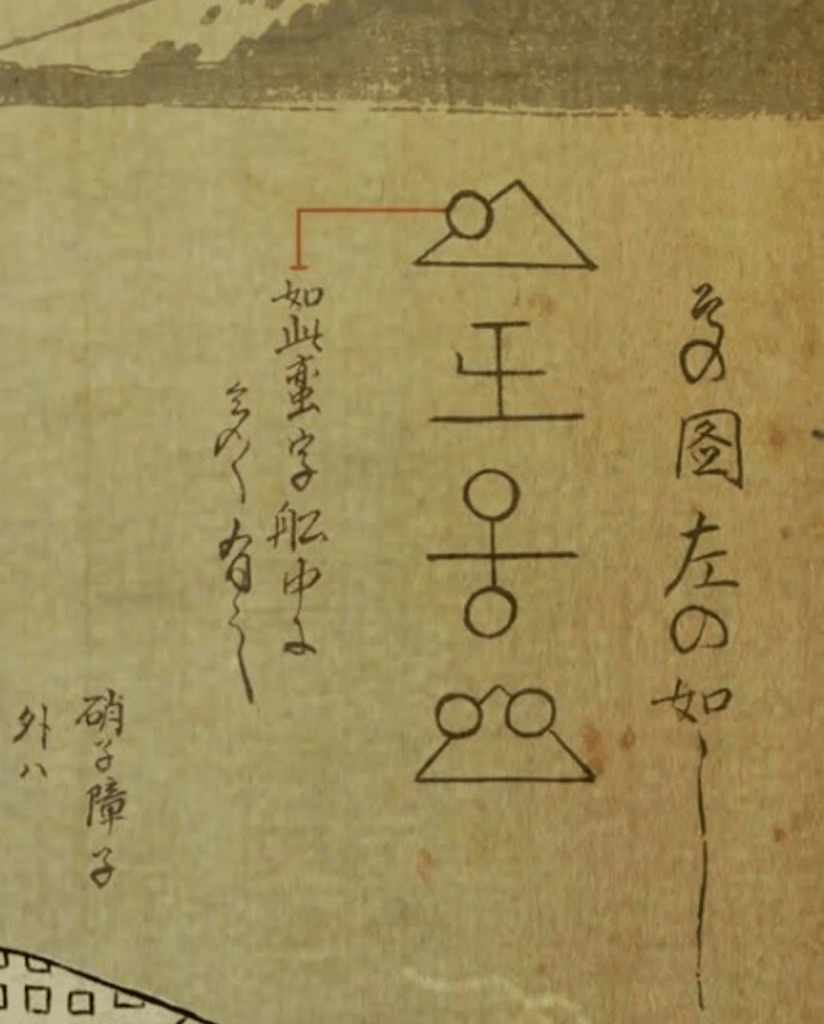 その图左の如し
如此蛮字舩中に
多く有之
硝子障子
外ハ